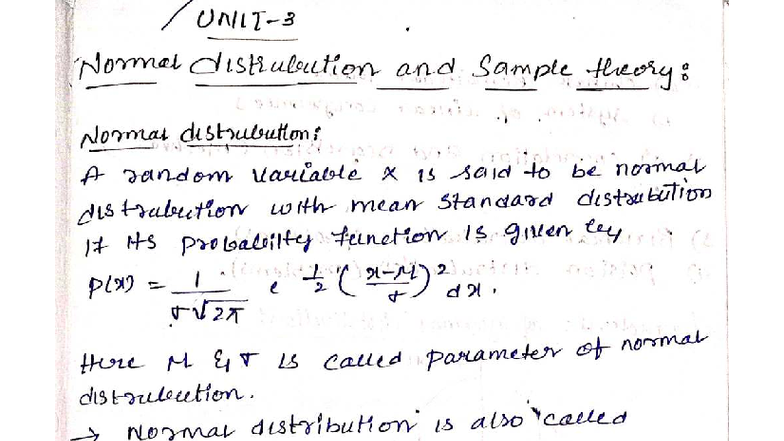 UNIT-3
Normal distribution and Sample theory:
Normal distribution:
A random variable x is said to be normal
distrubution with mean standard distribution
If its probability function is given by
P(x) = 1/(σ√2π) e 1/2 ((x-μ)/σ)² dx.
Here μ & σ is called parameter of normal
distrubution.
→ Normal distribution is also called